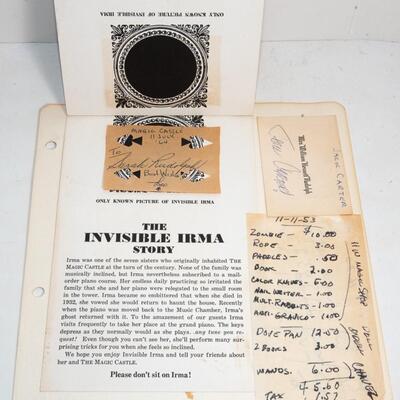 ONLY KNOWN PICTURE OF INVISIBLE IRMA
MAGIC CASTLE
11 JULY
'64
To
Sarah Rudolph
Best Wishes
ONLY KNOWN PICTURE OF INVISIBLE IRMA
THE
INVISIBLE IRMA
STORY
Irma was one of the seven sisters who originally inhabited THE
MAGIC CASTLE at the turn of the century. None of the family was
musically inclined, but Irma nevertheless subscribed to a mail-
order piano course. Her endless daily practicing so irritated the
family that she and her piano were relegated to the small room
in the tower. Irma became so embittered that when she died in
1932, she vowed she would return to haunt the house. Recently
when the piano was moved back to the Music Chamber, Irma's
ghost returned with it. To the amazement of our guests Irma
visits frequently to take her place at the grand piano. The keys
depress as they normally would as she plays. any tune you re-
quest! Even though you can't see her, she'll perform many sur-
prising tricks for you when she feels so inclined.
We hope you enjoy Invisible Irma and tell your friends about
her and THE MAGIC CASTLE.
Please don't sit on Irma!
Mrs. William Howell Rudolph
JACK CARTER
11-11-53
ZOMBIE - $10.00
ROPE - 3.00
PADDLES - .50
BOOK - 2.00
COLOR KNIVES - 6.00
NAIL WRITER - 1.00
MULT. RABBITS - 1.00
DOVE PAN 12.50
2 BOOKS 3.00
WANDS. 6.00
TAX 1.57
MAGIC SHOP